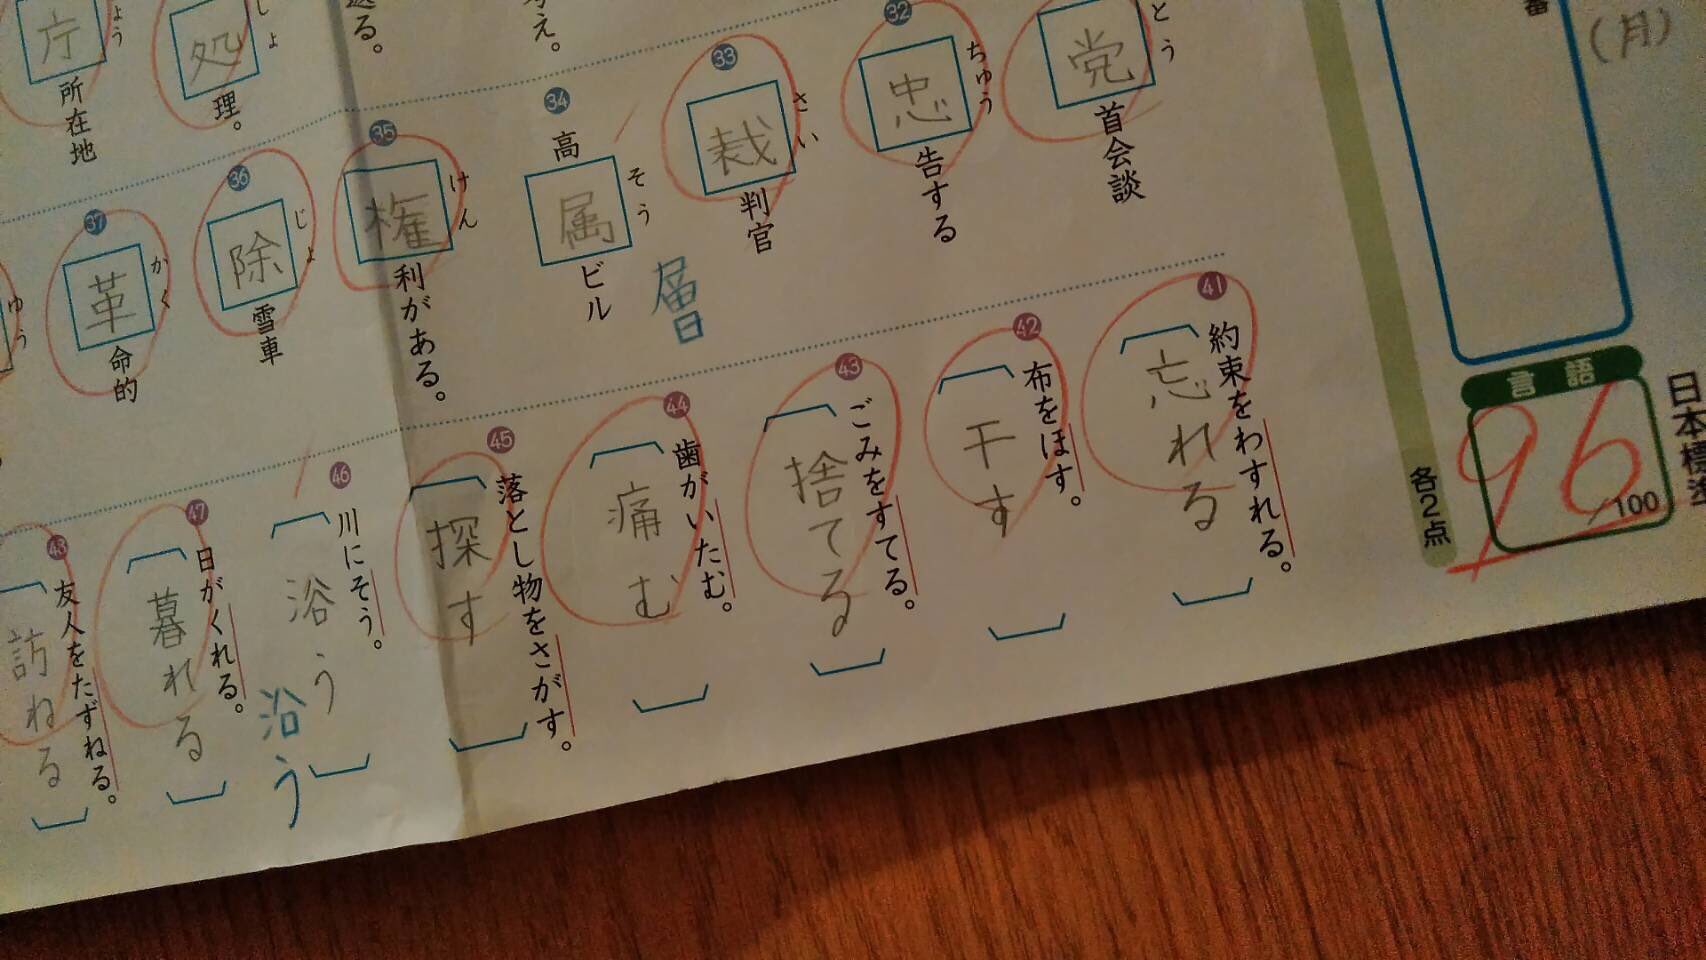 (月)
日本標準
言語
96
/100
各2点
とう
党首会談
32 ちゅう
忠告する
33 さい
裁判官
34 そう
高属ビル
層
35 けん
権利がある。
36 じょ
除雪車
37 かく
革命的
ゆう
しょ
処理。
ょう
庁所在地
41 約束をわすれる。
忘れる
42 布をほす。
干す
43 ごみをすてる。
捨てる
44 歯がいたむ。
痛む
45 落とし物をさがす。
探す
46 川にそう。
浴う
沿う
47 日がくれる。
暮れる
48 友人をたずねる。
訪ねる